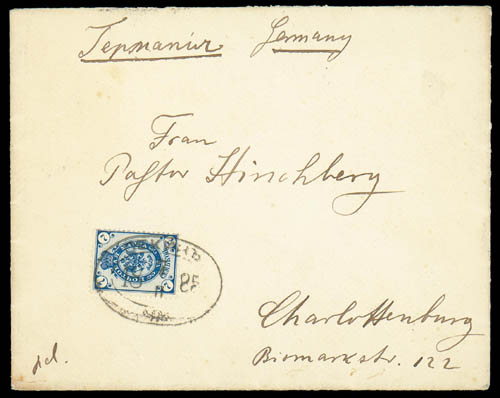 Германия Germany
Frau
Pastor Hirschberg
7 7
Charlottenburg
Bismarckstr. 122